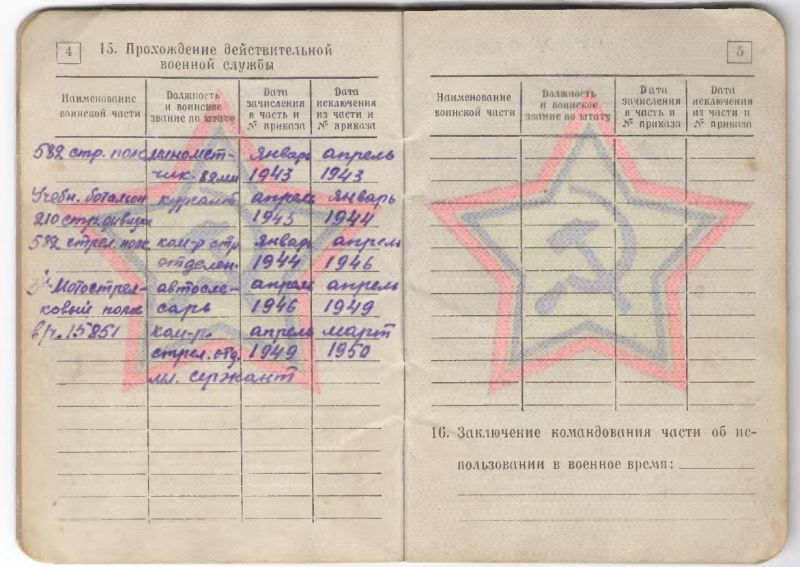 4
15. Прохождение действительной
военной службы
Наименование
воинской части
Должность
и воинское
звание по штату
Дата
зачисления
в часть и
№ приказа
Дата
исключения
из части и
№ приказа
582 стр. полк миномет- январь апрель
чик 82мм 1943 1943
Учебн. баталион курсант апрель январь
210 стр. дивизии 1943 1944
582 стрел. полк ком-р стр январь апрель
отделен. 1944 1946
3й Мотострел- автосле- апрель апрель
ковый полк сарь 1946 1949
в/ч. 15851 ком-р апрель март
стрел. отд. 1949 1950
мл. сержант
5
Наименование
воинской части
Должность
и воинское
звание по штату
Дата
зачисления
в часть и
№ приказа
Дата
исключения
из части и
№ приказа
16. Заключение командования части об ис-
пользовании в военное время: